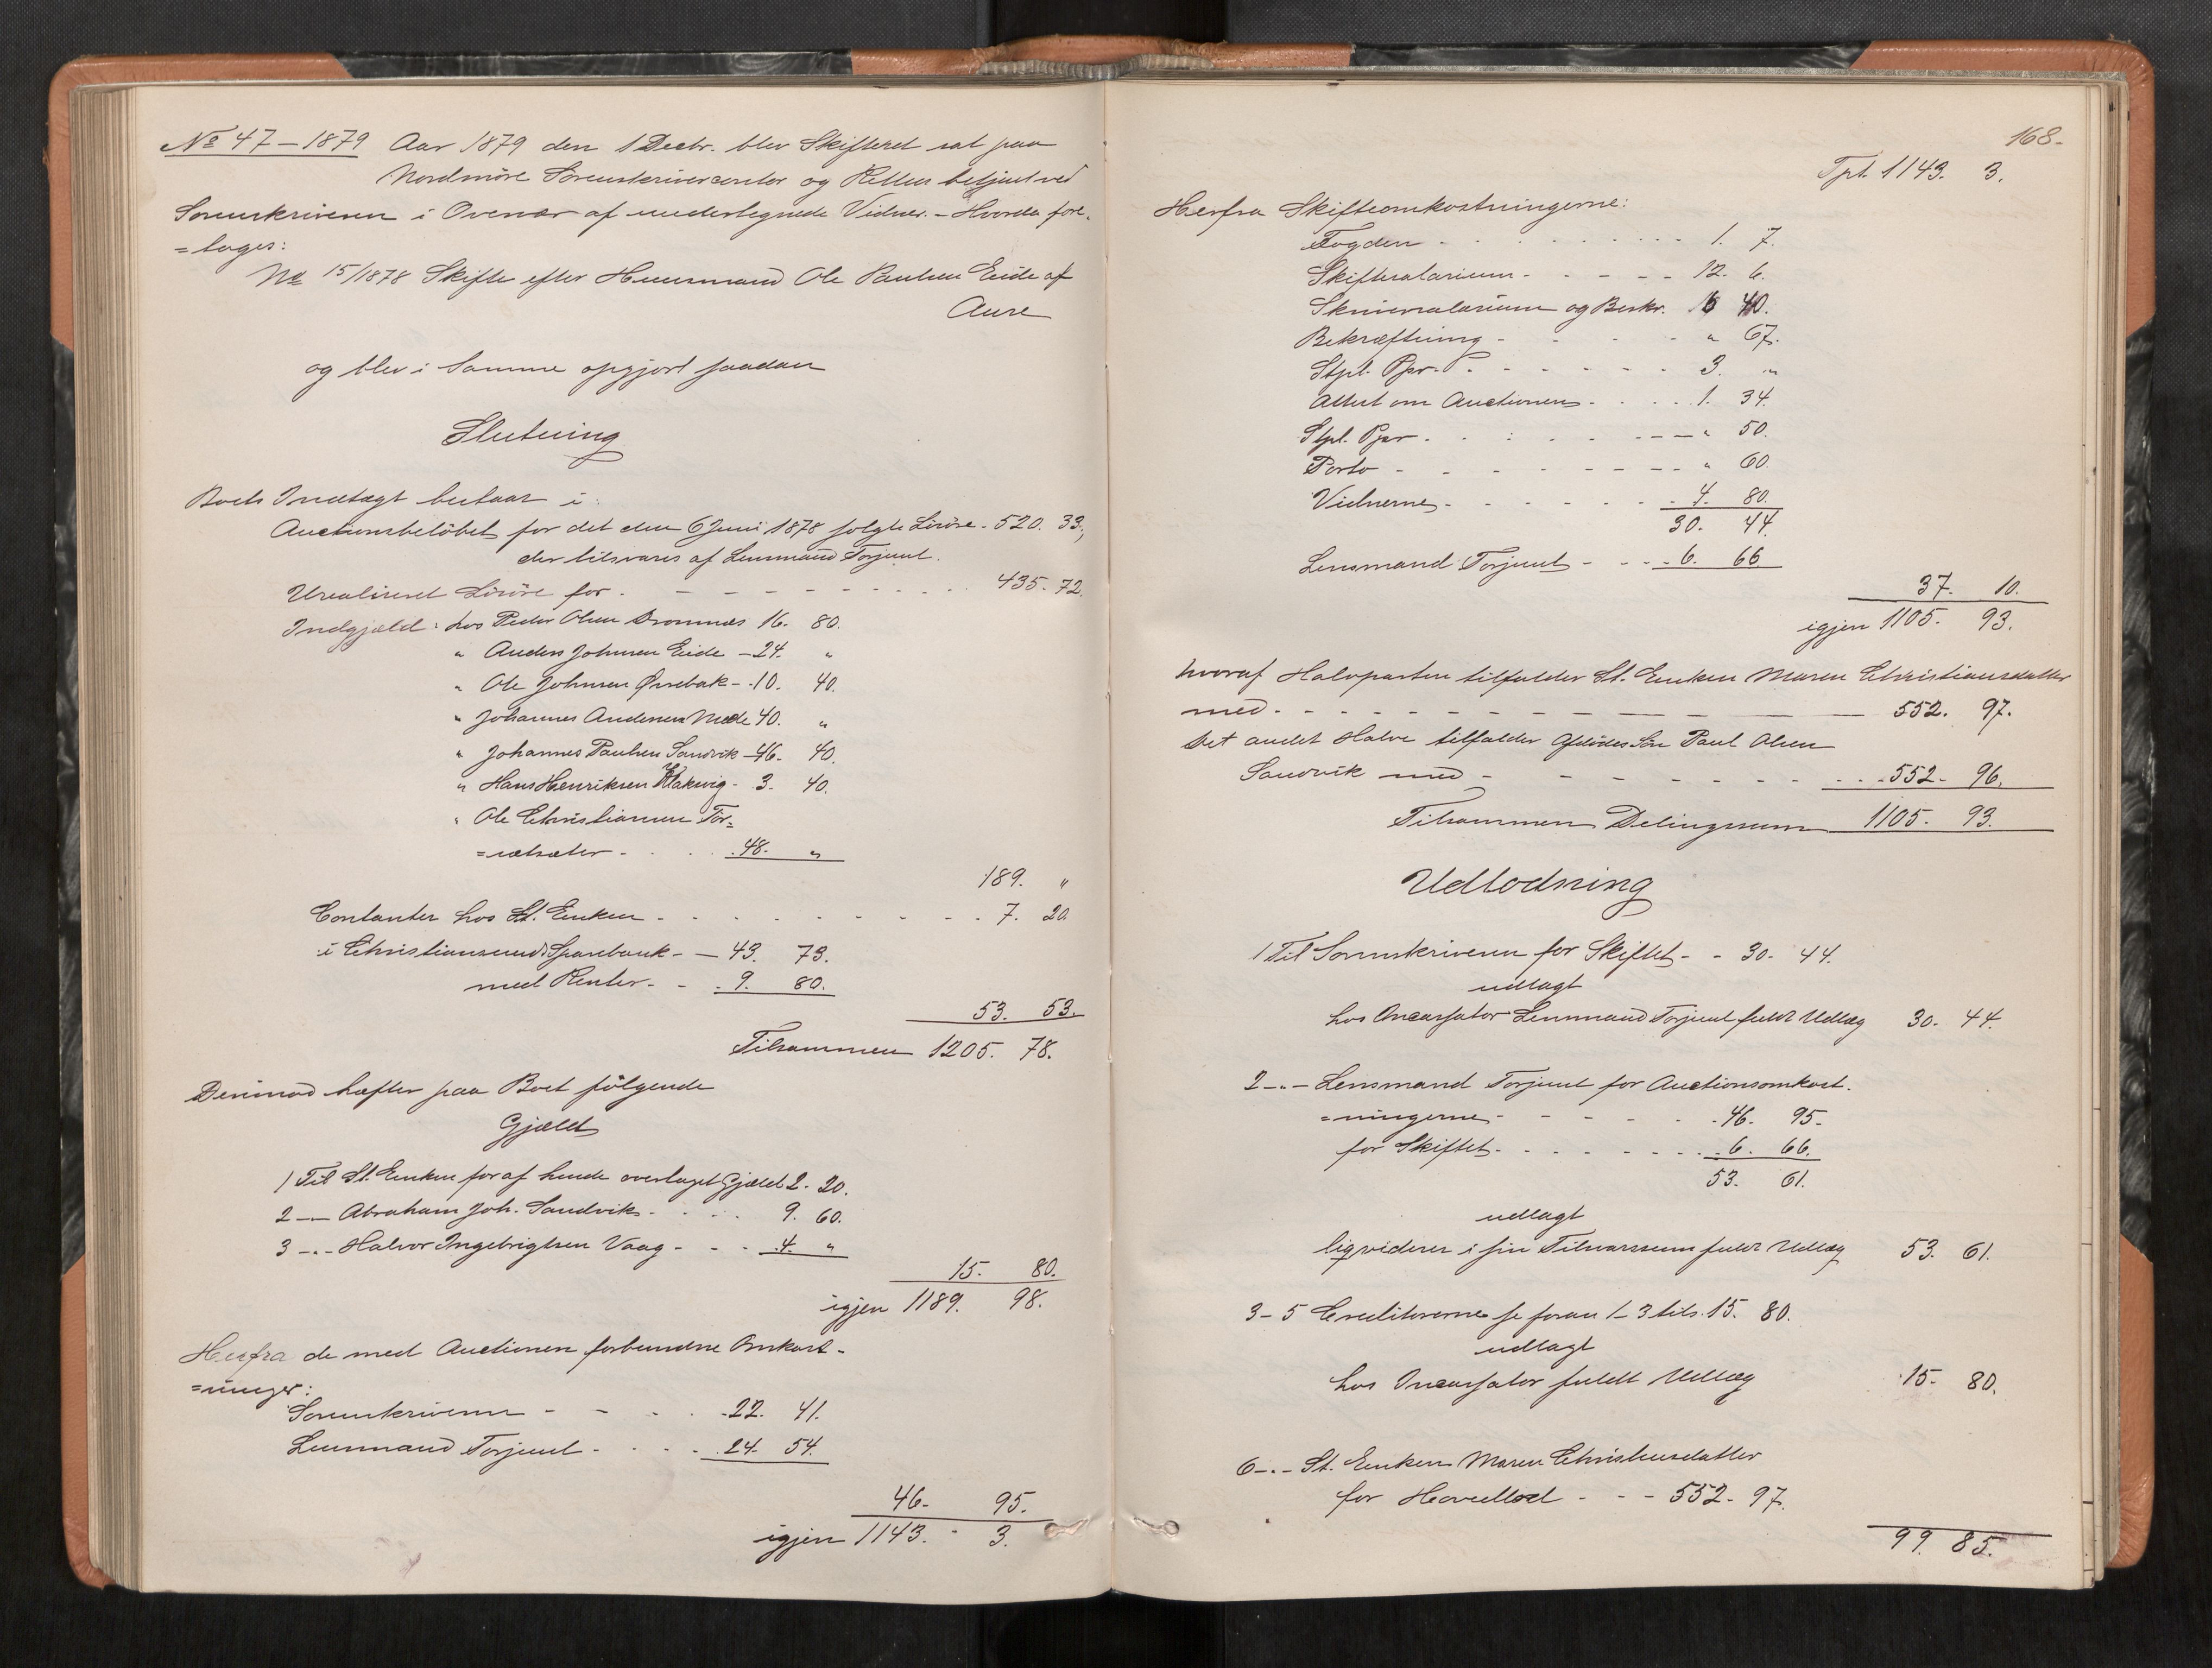 No 47 – 1879 Aar 1879 den 1 Decbr. blev Skifteret sat paa
Nordmöre Sorenskrivercontor og Retten betjent ved
Sorenskriveren i Overvær af undertegnede Vidner. – Hvorda fore-
=toges:
No 15/1878 Skifte efter Huusmand Ole Paulsen Eide af
Aure
og blev i samme opgjort saadan
Slutning
Boets Indtægt bestaar i:
Auctionsbelöbet for det den 6 Juni 1878 solgte Lösöre - 520. 33,
der tilsvares af Lensmand Torjuul.
Urealiseret Lösöre for - - - - 435. 72.
Indgjæld: hos Peder Olsen Dromnæs 16. 80.
" Anders Johnsen Eide - 24. "
" Ole Johnsen Ørsebak - 10. 40.
" Johannes Andersen Mæle 40. "
" Johannes Paulsen Sandvik - 46. 40.
" Hans Henriksen - 3. 40.
" Ole Christiansen Tör=
=ætsæter - 48. "
189. "
Contanter hos St. Enken - - - 7. 20.
i Christianssund Sparebank - - 43. 73.
med Renter - - 9. 80.
53. 53.
Tilsammen 1205. 78.
Derimod hæfter paa Boet fölgende
Gjæld
1 Til St. Enken for af hende overtaget Gjæld 2. 20.
2 - - Abraham Joh. Sandvik - 9. 60.
3 - " - Halvor Ingebrigtsen Vaag - - 4. "
15. 80.
igjen 1189. 98.
Herfra de med Auctionen forbundne Omkost-
=ninger:
Sorenskriveren - - 22. 41.
Lensmand Torjuul - - 24. 54.
46. 95.
igjen 1143. - 3.
168.
Tpt. 1143. 3.
Herfra Skifteomkostningerne:
Fogden - - - 1. 7.
Skiftesalarium - - - 12. 6.
Skriversalarium og Beskr. 6 40.
Bekræftning - - " 67.
Stpl. Ppr. - - - 3. "
Attest om Auctionen - - 1. 34.
Stpl. Ppr - - - " 50.
Porto - - - " 60.
Vidnerne - - - 4. 80.
30. 44.
Lensmand Torjuul - - - 6. 66
37. 10.
igjen 1105. 93.
hvoraf Halvparten tilfalder St. Enken Maren Christiansdatter
med - - - - 552. 97.
Det andet Halve tilfalder Afdödes Sön Paul Olsen
Sandvik med - - - - 552. 96.
Tilsammen Delingssum 1105. 93.
Udlodning
1 Til Sorenskriveren for Skiftet - - 30. 44.
udlagt
hos Incassator Lensmand Torjuul fuldt Udlæg 30. 44.
2 - " - Lensmand Torjuul for Auctionsomkost.
=ningerne - - - 46. 95.
for Skiftet - - - 6. 66.
53. 61.
udlagt
liqviderer i sin Tilsvarssum fuldt Udlæg 53. 61.
3 – 5 Creditorerne se foran 1 – 3 tils. 15. 80.
udlagt
hos Incassator fuldt Udlæg 15. 80.
6 - " - St. Enken Maren Christensdatter
for Hovedlod - - - 552. 97.
99. 85.